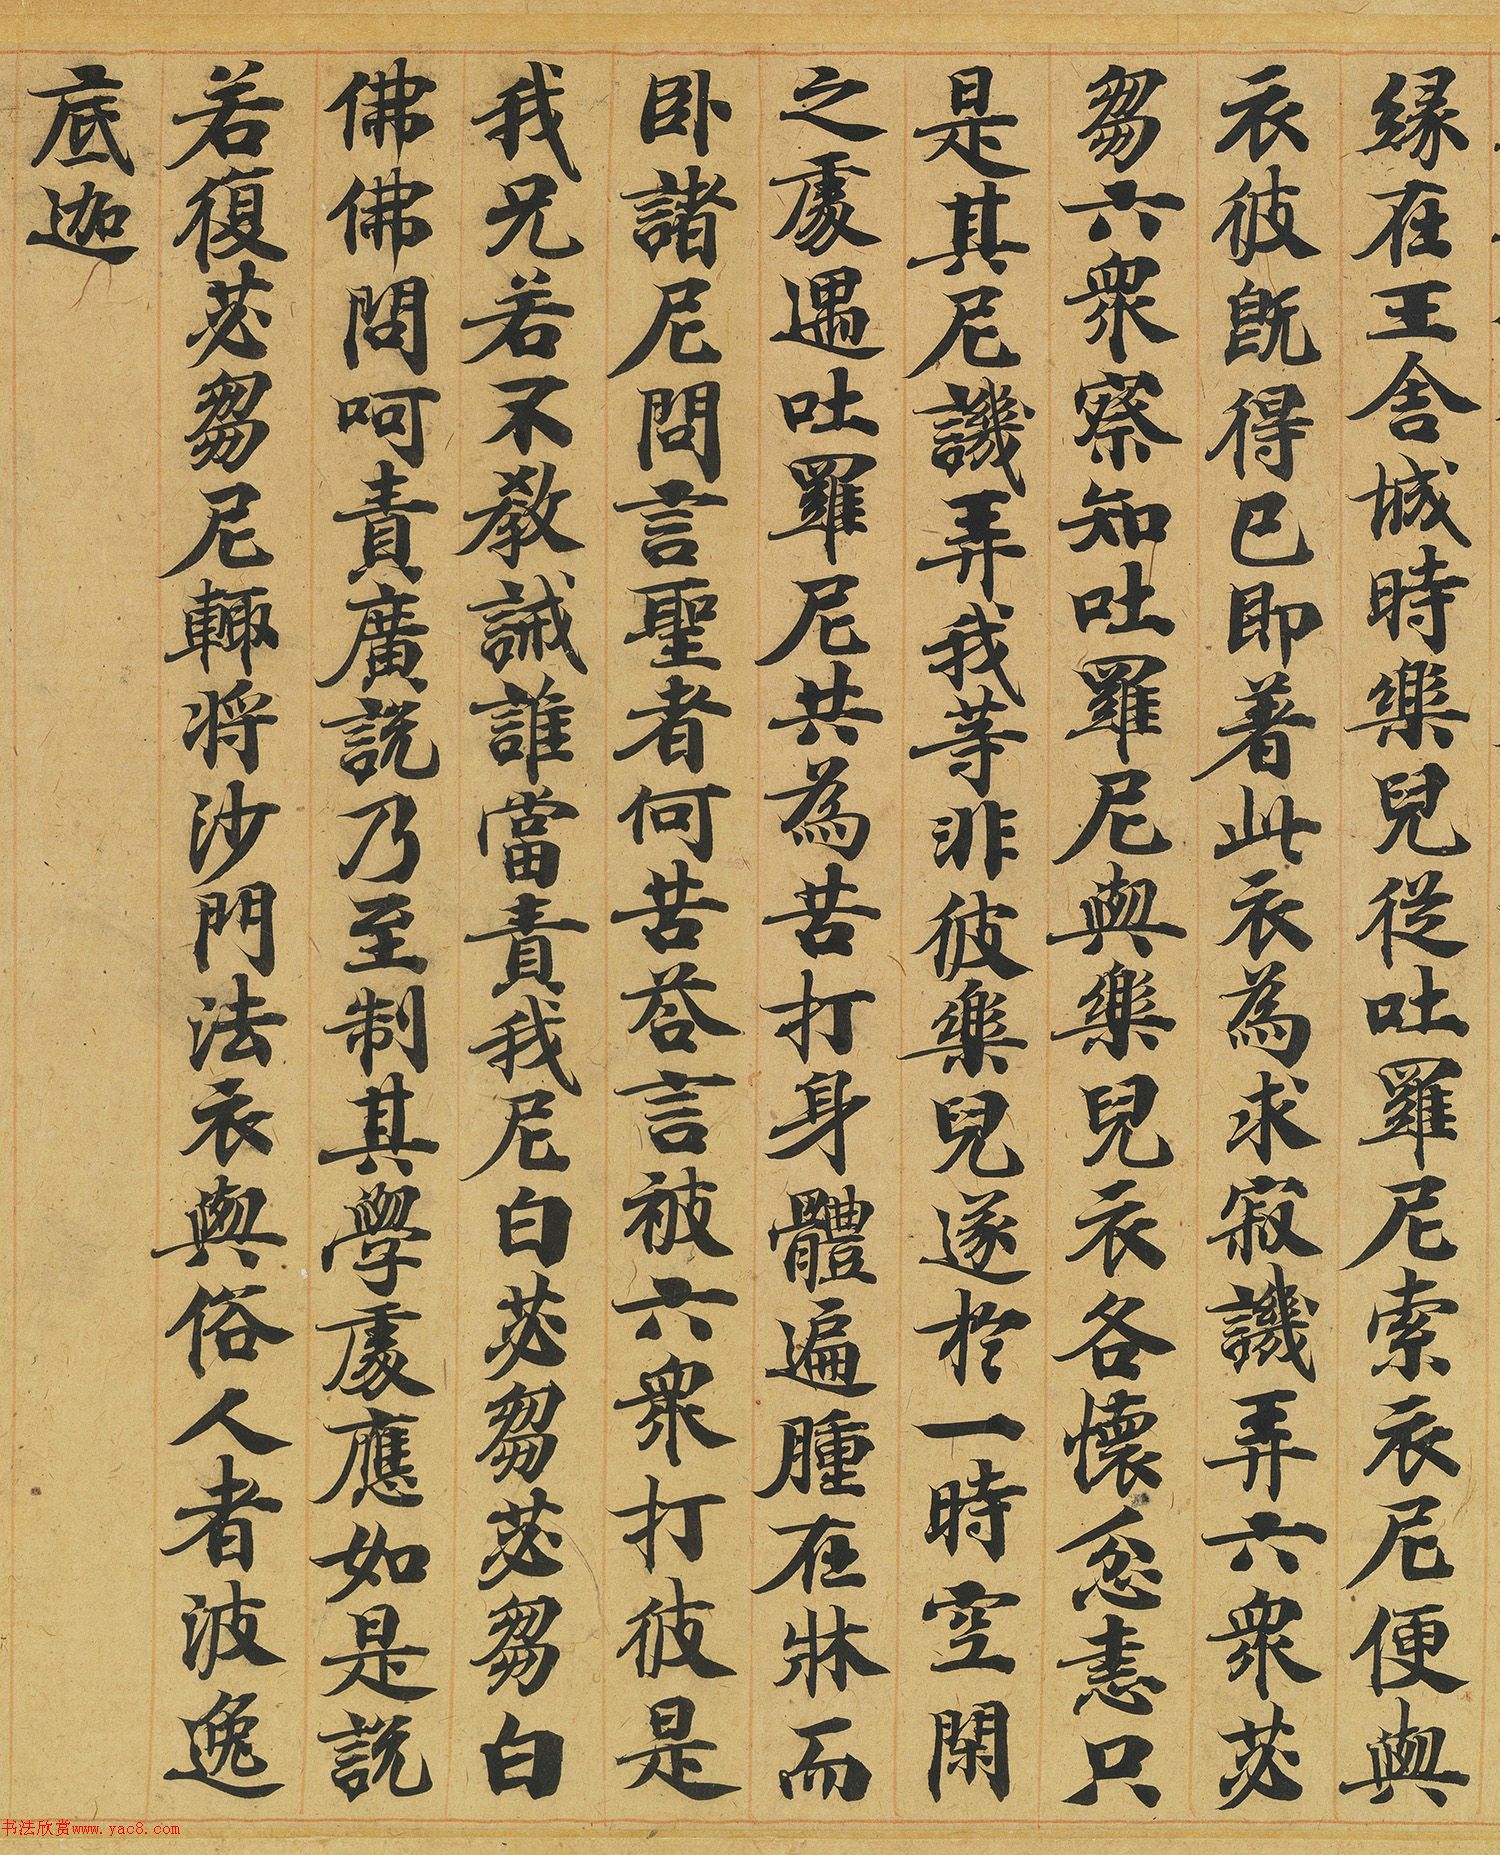 緣在王舍城時樂兒從吐羅尼索衣尼便與
衣彼既得已即著此衣為求寂譏弄六眾苾
芻六眾察知吐羅尼與樂兒衣各懷忿恚只
是其尼譏弄我等非彼樂兒遂於一時空閑
之處遇吐羅尼共為苦打身體遍腫在牀而
臥諸尼問言聖者何苦荅言被六眾打彼是
我兄若不教誡誰當責我尼白苾芻苾芻白
佛佛問呵責廣說乃至制其學處應如是說
若復苾芻尼輙將沙門法衣與俗人者波逸
底迦
书法欣赏www.yac8.com